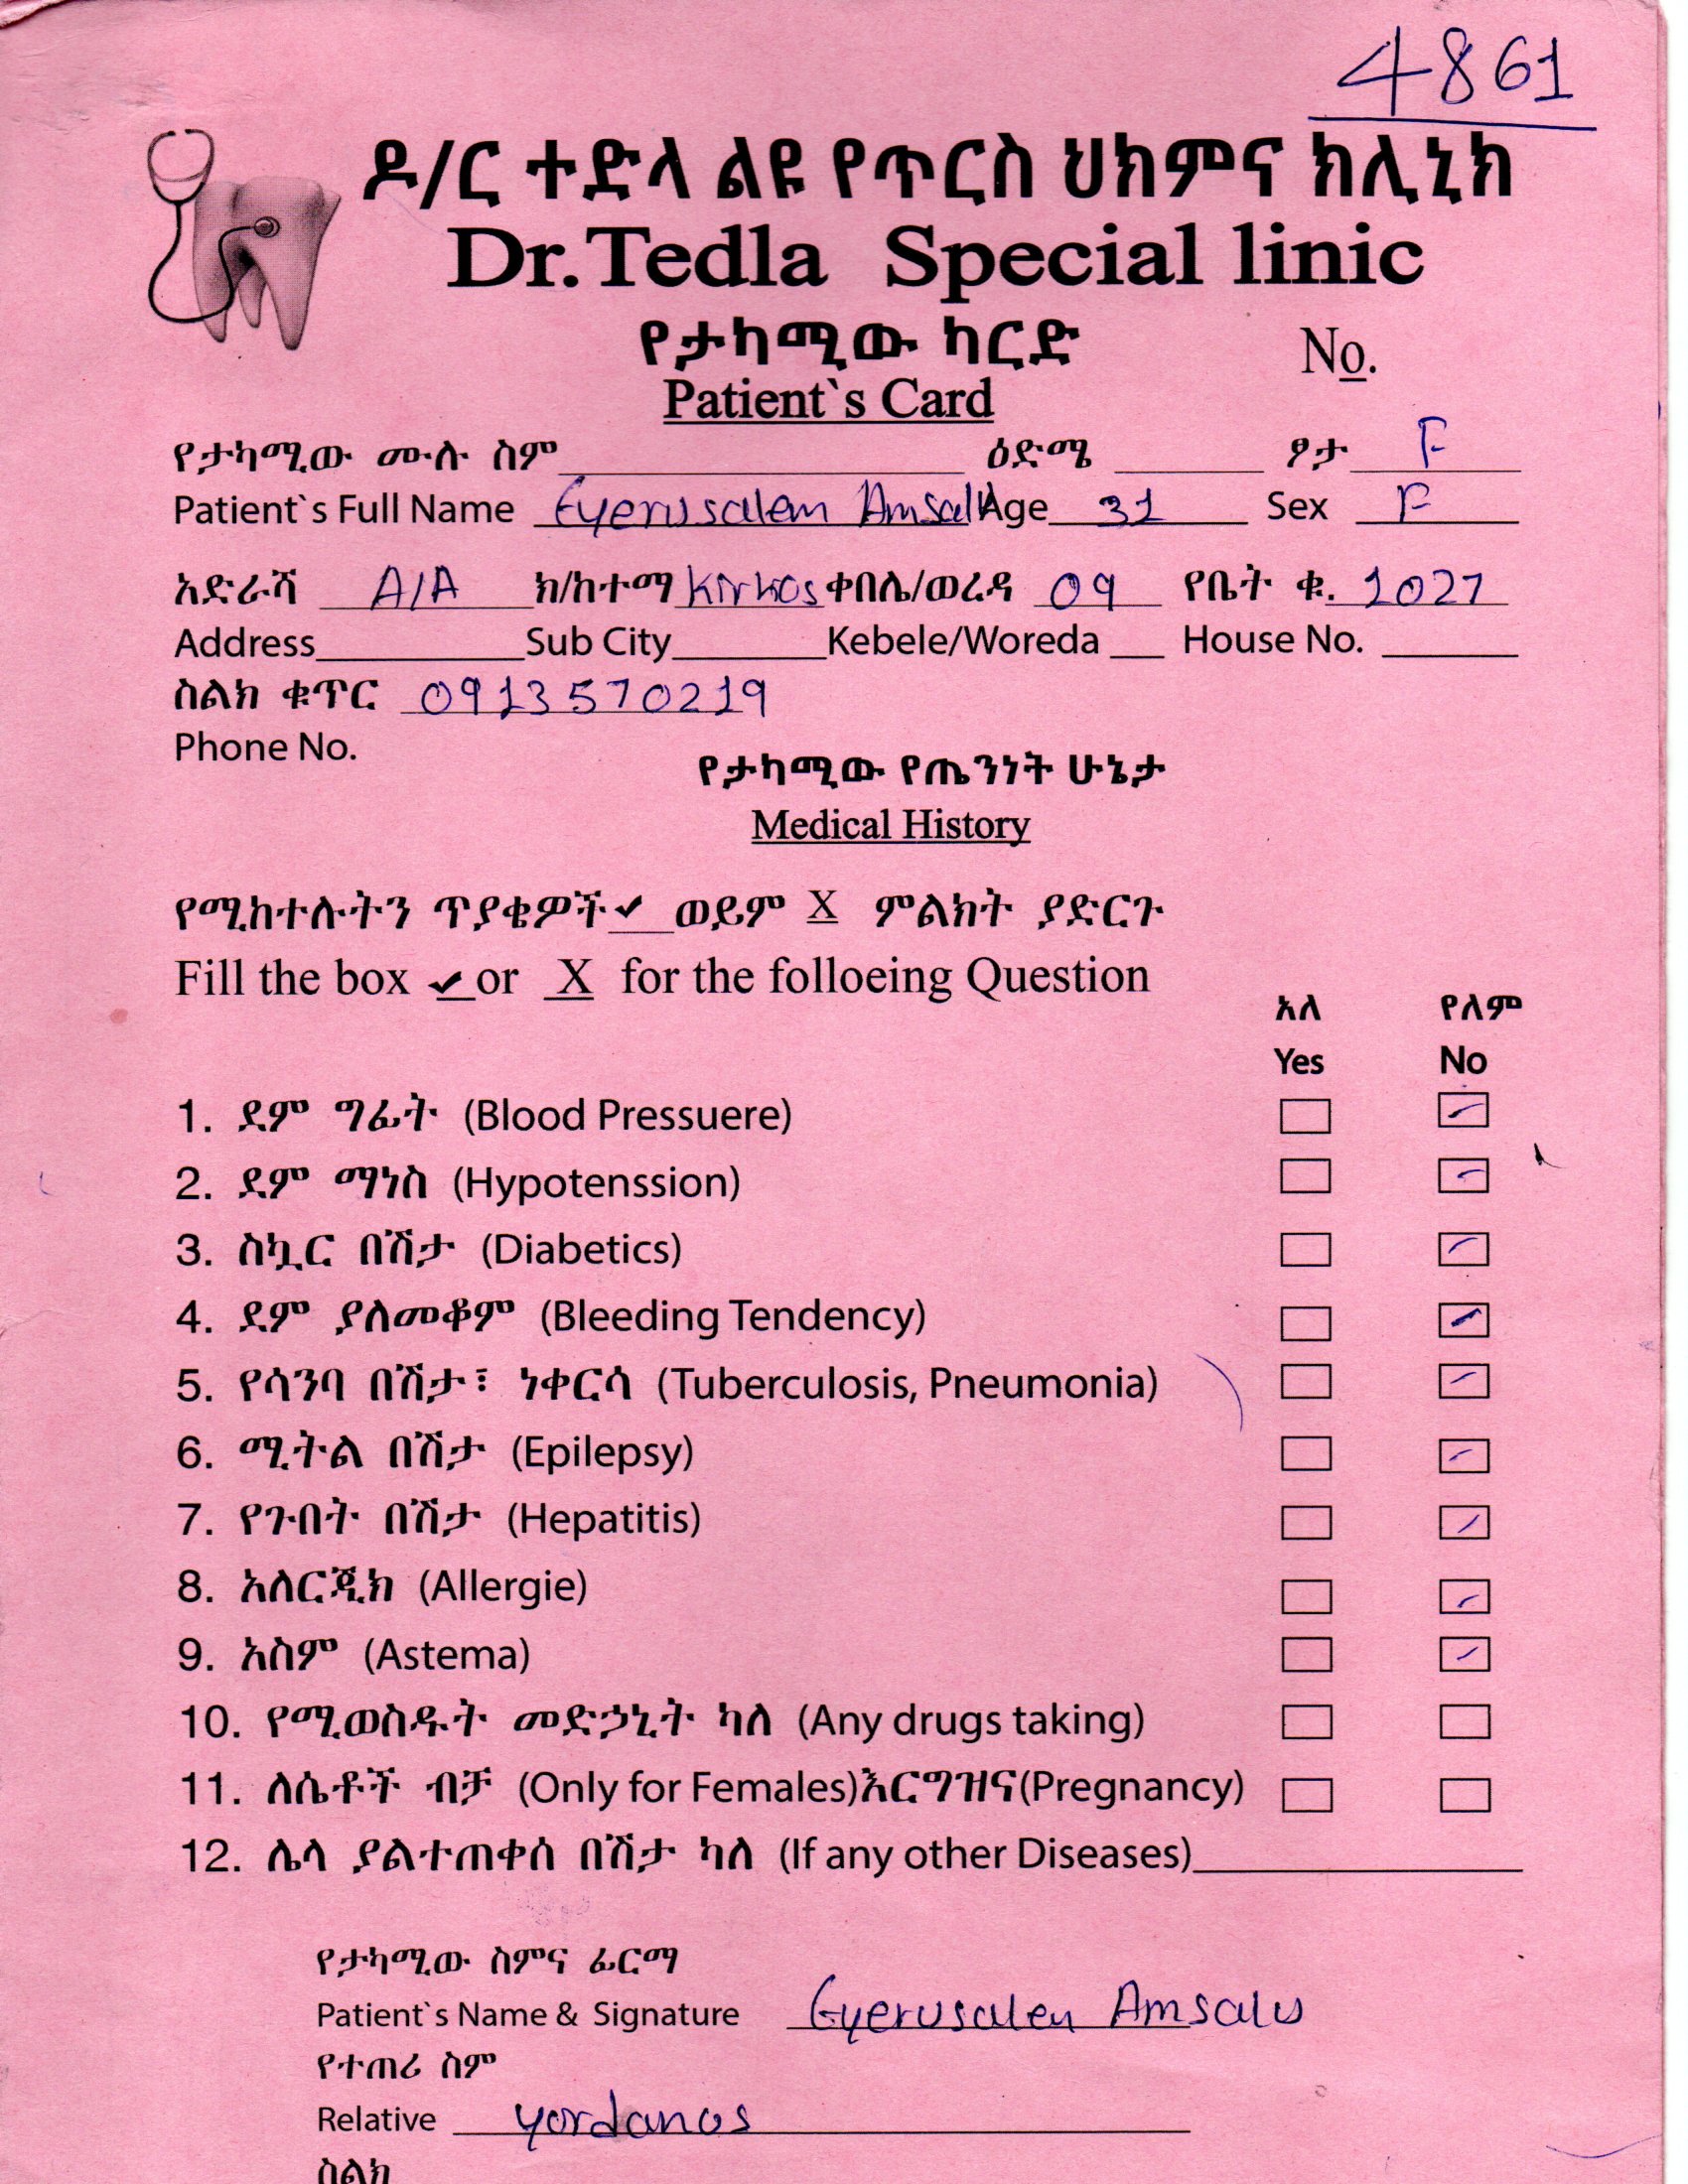 4861
ዶ/ር ተድላ ልዩ የጥርስ ህክምና ክሊኒክ
Dr.Tedla Special linic
የታካሚው ካርድ No.
Patient`s Card
የታካሚው ሙሉ ስም ዕድሜ ፆታ F
Patient`s Full Name Eyerusalem Amsalu Age 31 Sex F
አድራሻ A/A ክ/ከተማ Kirkos ቀበሌ/ወረዳ 09 የቤት ቁ. 1027
Address Sub City Kebele/Woreda House No.
ስልክ ቁጥር 0913570219
Phone No.
የታካሚው የጤንነት ሁኔታ
Medical History
የሚከተሉትን ጥያቄዎች ✓ ወይም X ምልክት ያድርጉ
Fill the box ✓ or X for the folloeing Question
አለ የለም
Yes No
1. ደም ግፊት (Blood Pressuere)
2. ደም ማነስ (Hypotenssion)
3. ስኳር በሽታ (Diabetics)
4. ደም ያለመቆም (Bleeding Tendency)
5. የሳንባ በሽታ፣ ነቀርሳ (Tuberculosis, Pneumonia)
6. ሚትል በሽታ (Epilepsy)
7. የጉበት በሽታ (Hepatitis)
8. አለርጂክ (Allergie)
9. አስም (Astema)
10. የሚወስዱት መድኃኒት ካለ (Any drugs taking)
11. ለሴቶች ብቻ (Only for Females)እርግዝና(Pregnancy)
12. ሌላ ያልተጠቀሰ በሽታ ካለ (If any other Diseases)
የታካሚው ስምና ፊርማ
Patient`s Name & Signature Eyerusalem Amsalu
የተጠሪ ስም
Relative Yordanos
ስልክ